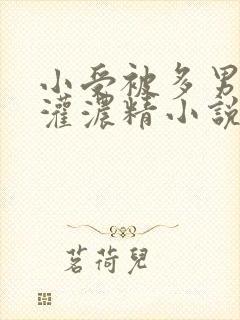 小受被多男
灌濃精小說
茗荷兒